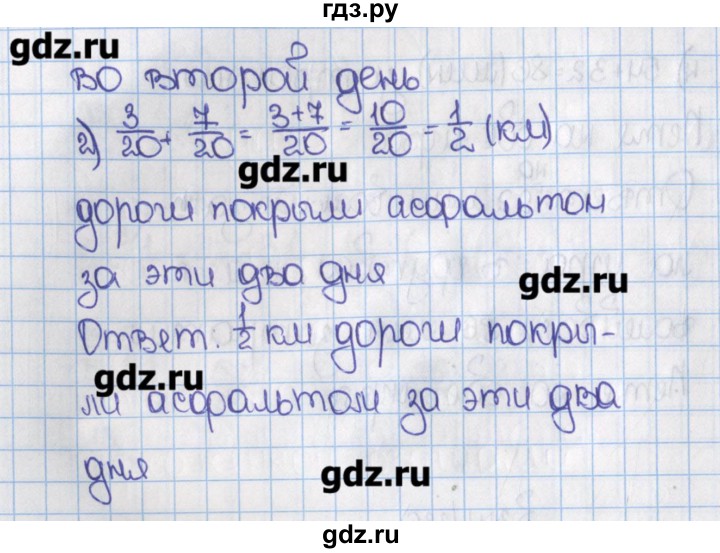 гдз.ру
gdz.ru
во второй день
2) 3/20 + 7/20 = 3+7/20 = 10/20 = 1/2 (км)
gdz.ru
дороги покрыли асфальтом
за эти два дня
gdz.ru
Ответ. 1/2 км дороги покры-
gdz.ru
ли асфальтом за эти два
дня
gdz.ru
gdz.ru